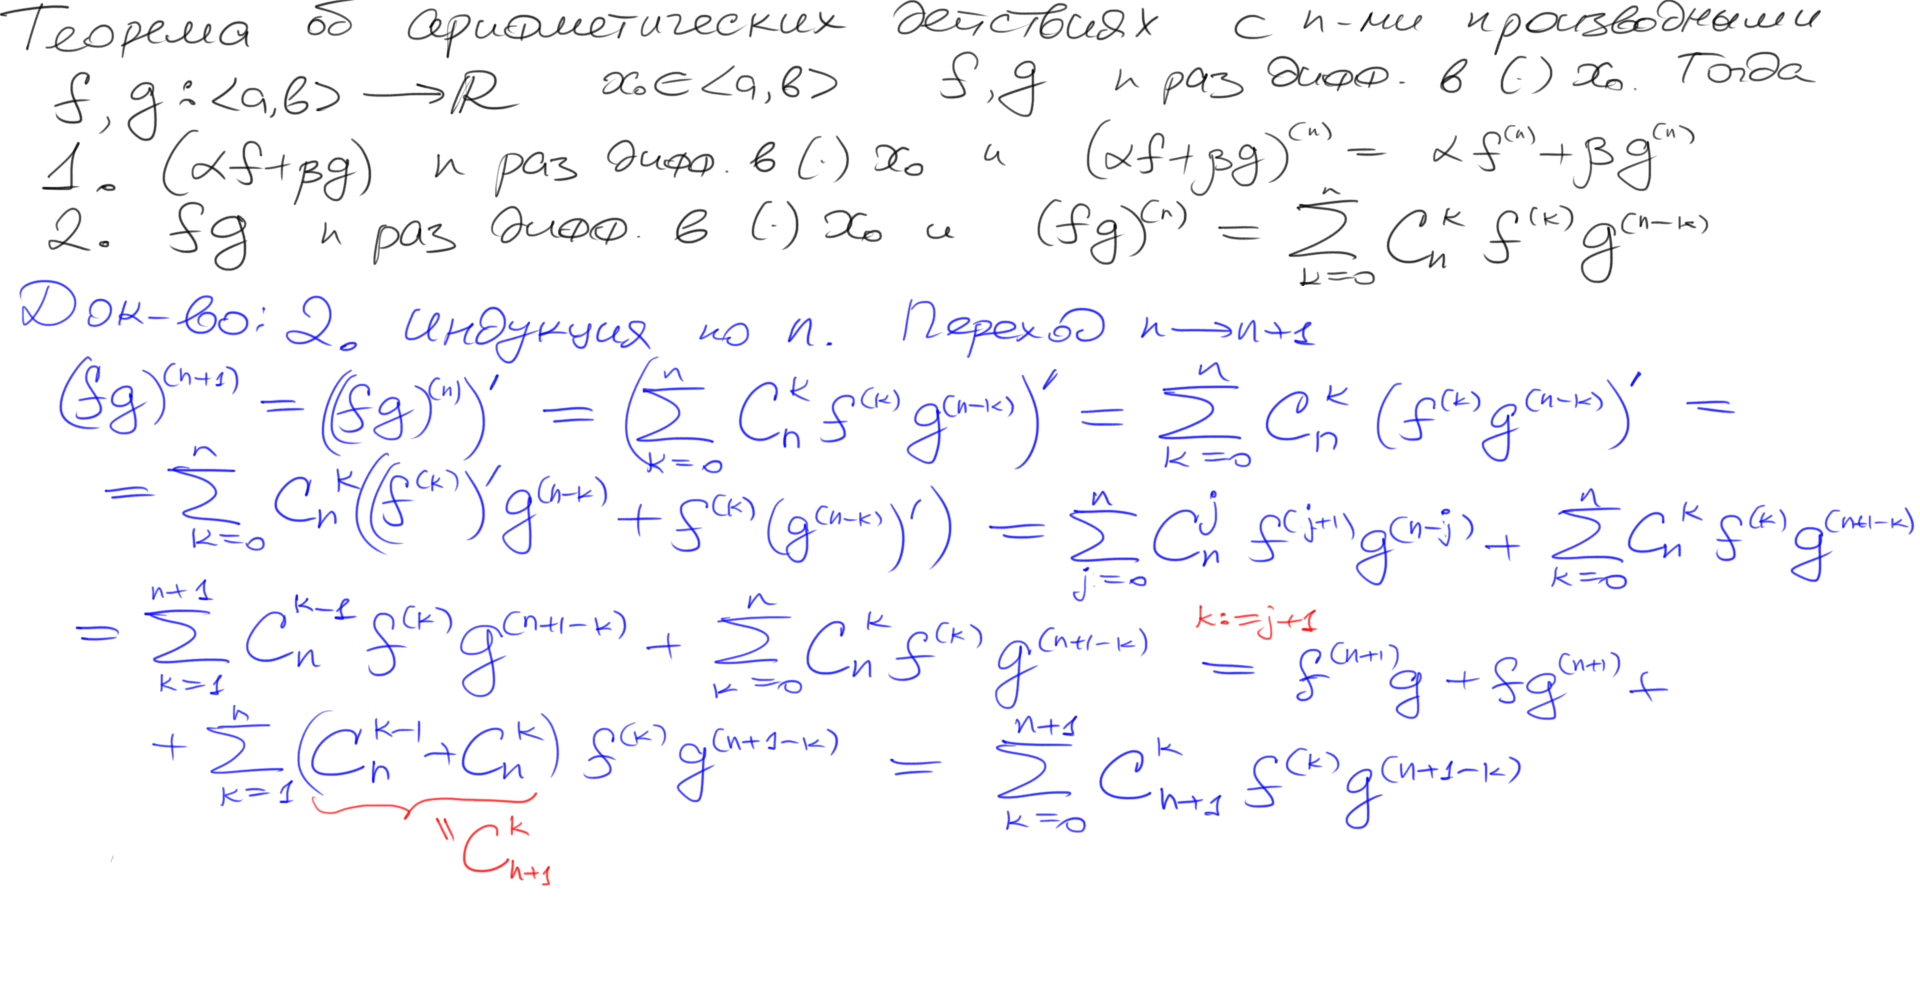 Теорема об арифметических действиях с n-ми производными
f, g : <a,b> ⟶ ℝ x₀ ∈ <a,b> f, g n раз дифф. в (·) x₀. Тогда
1. (αf+βg) n раз дифф. в (·) x₀ и (αf+βg)⁽ⁿ⁾ = αf⁽ⁿ⁾ + βg⁽ⁿ⁾
2. fg n раз дифф. в (·) x₀ и (fg)^{(n)} = \sum_{k=0}^{n} C_n^k f^{(k)} g^{(n-k)}
Док-во: 2. индукция по n. Переход n ⟶ n+1
(fg)^{(n+1)} = ((fg)^{(n)})' = (\sum_{k=0}^{n} C_n^k f^{(k)} g^{(n-k)})' = \sum_{k=0}^{n} C_n^k (f^{(k)} g^{(n-k)})' =
= \sum_{k=0}^{n} C_n^k ((f^{(k)})' g^{(n-k)} + f^{(k)} (g^{(n-k)})') = \sum_{j=0}^{n} C_n^j f^{(j+1)} g^{(n-j)} + \sum_{k=0}^{n} C_n^k f^{(k)} g^{(n+1-k)}
k:=j+1
= \sum_{k=1}^{n+1} C_n^{k-1} f^{(k)} g^{(n+1-k)} + \sum_{k=0}^{n} C_n^k f^{(k)} g^{(n+1-k)} = f^{(n+1)} g + f g^{(n+1)} +
+ \sum_{k=1}^{n} (C_n^{k-1} + C_n^k) f^{(k)} g^{(n+1-k)} = \sum_{k=0}^{n+1} C_{n+1}^k f^{(k)} g^{(n+1-k)}
\\ C_{n+1}^k